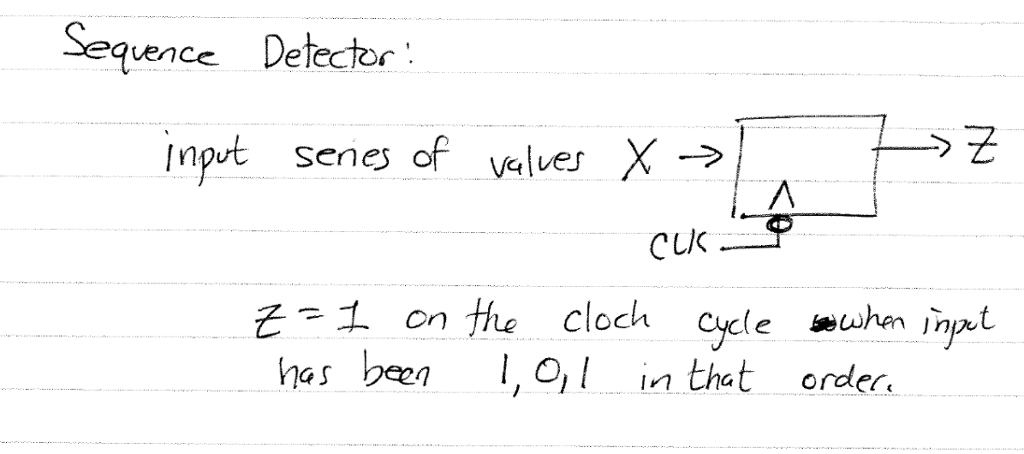 Sequence Detector:
input series of values X → → Z
CLK
Z = 1 on the clock cycle when input
has been 1, 0, 1 in that order.